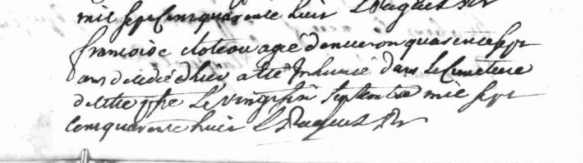 mil sept Cent quarente huit L Duguet
francoise cloteau agé denviron quarente sept
ans decedé dhier a eté Inhumé dans le Cimetiere
de cette psse Le vingt six septembre mil sept
Cent quarente huit L Duguet